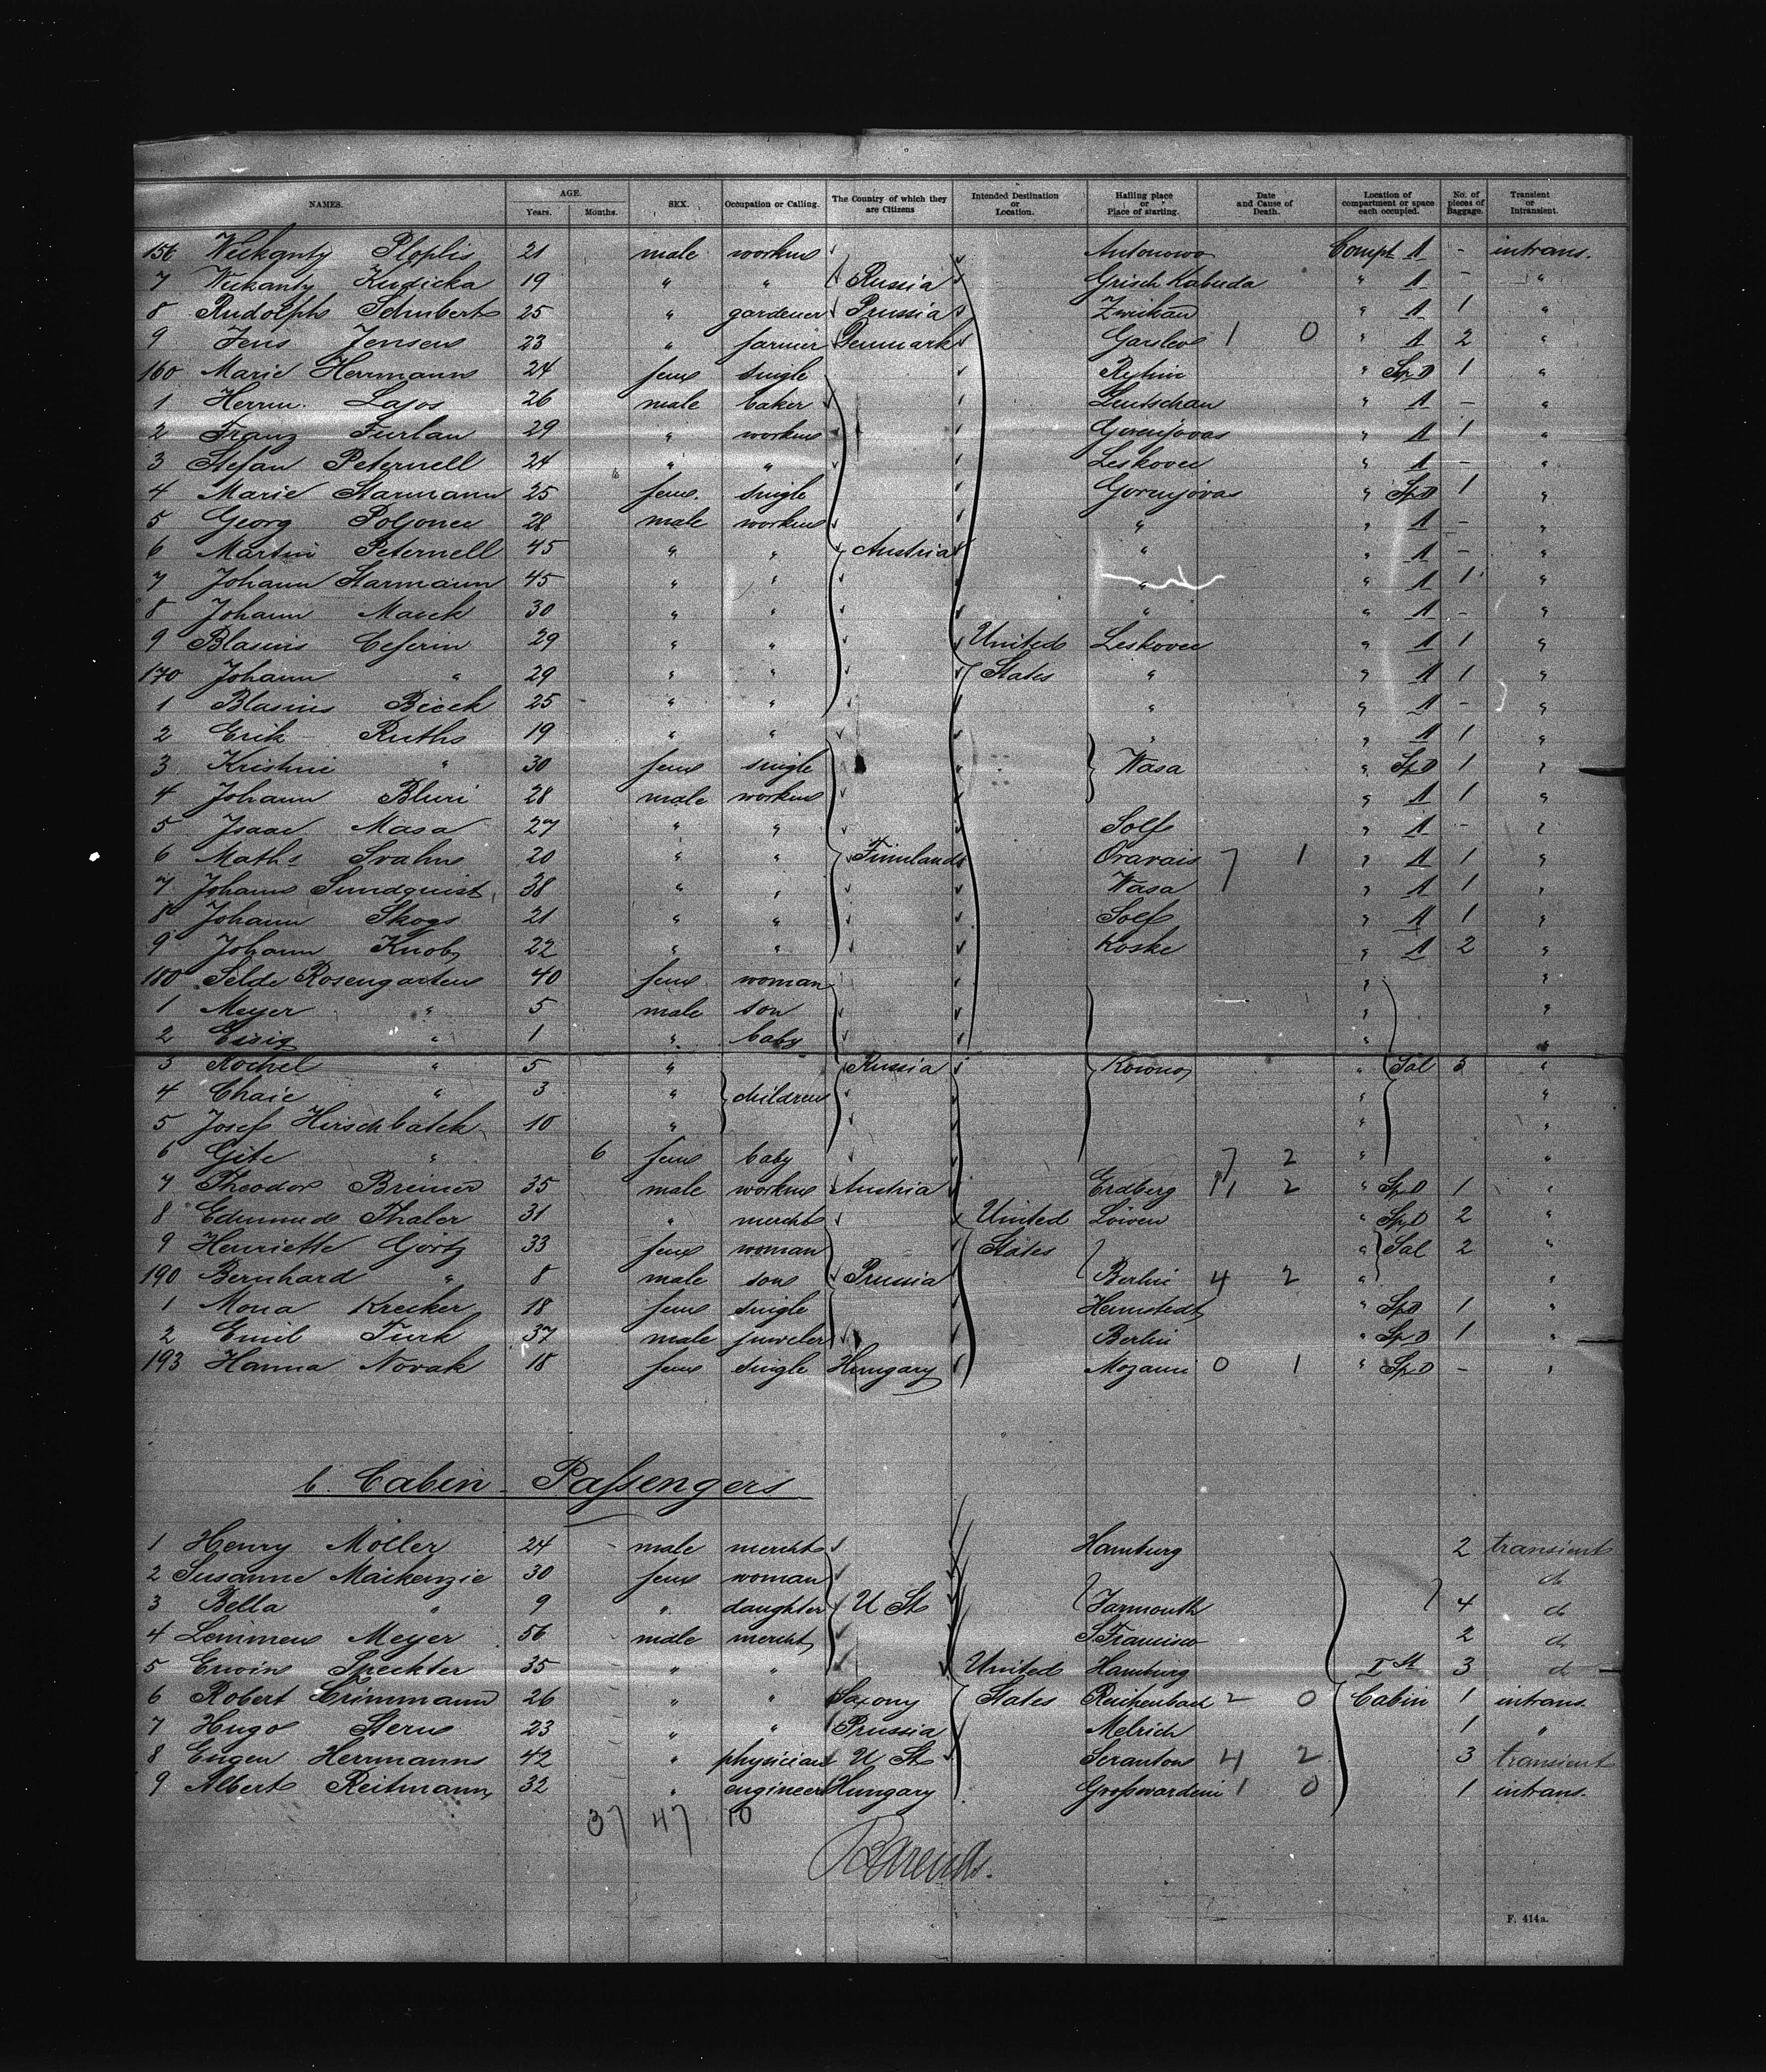 NAMES. AGE. Years. Months. SEX. Occupation or Calling. The Country of which they are Citizens Intended Destination or Location. Hailing place or Place of starting. Date and Cause of Death. Location of compartment or space each occupied. No. of pieces of Baggage. Transient or Intransient.
156 Ploplis 21 male workm Antonowo Compt A - intrans.
7 Kudicka 19 " " Russia Grisch Kabuda " A - "
8 Rudolph Schubert 25 " gardener Prussia Zwickau " A 1 "
9 Jens Jensen 23 " farmer Denmark Garslev 1 0 " A 2 "
160 Marie Herrmann 24 fem single " Sp D 1 "
1 Herm. Lajos 26 male baker Leutschau " A - "
2 Franz Furlan 29 " workm " A 1 "
3 Stefan Peternell 24 " " Leskovec " A - "
4 Marie Starmann 25 fem. single " Sp D 1 "
5 Georg Poljonec 28 male workm " " A - "
6 Martin Peternell 45 " " Austria " " A - "
7 Johann Starmann 45 " " " " A 1 "
8 Johann 30 " " " " A - "
9 Blasius Ceferin 29 " " United Leskovec " A 1 "
170 Johann " 29 " " States " " A 1 "
1 Blasius 25 " " " " A - "
2 Erik Ruths 19 " " " " A 1 "
3 Kristine " 30 fem single Wasa " Sp D 1 "
4 Johann 28 male workm " A 1 "
5 Isaac Masa 27 " " Solf " A - "
6 Maths Svahn 20 " " Finnland Oravais 7 1 " A 1 "
7 Johann Sundquist 38 " " Wasa " A 1 "
8 Johann Skogs 21 " " Solf " A 1 "
9 Johann Knob 22 " " Koske " A 2 "
180 Selde Rosengarten 40 fem woman " "
1 Meyer " 5 male son " "
2 " 1 " baby " "
3 Rochel " 5 " Russia Kowno " Sal 3 "
4 Chaie " 3 " children " "
5 Josef Hirschbatek 10 " " "
6 Gite " 6 fem baby 7 2 " "
7 Theodor Breiner 35 male workm Austria Erdberg 11 2 " Sp D 1 "
8 Edmund Thaler 31 " mercht United Löwen " Sp D 2 "
9 Henriette Görtz 33 fem woman States " Sal 2 "
190 Bernhard " 8 male son Prussia Berlin 4 2 " "
1 Mona Krecker 18 fem single " Sp D 1 "
2 Emil Turk 37 male juweler Berlin " Sp D 1 "
193 Hanna Novak 18 fem single Hungary 0 1 " Sp D - "
b. Cabin Passengers
1 Henry Möller 24 - male mercht Hamburg 2 transient
2 Susanne Mackenzie 30 fem woman do
3 Bella " 9 " daughter U St Yarmouth 4 do
4 Meyer 56 - male mercht S Francisco 2 do
5 Erwin Speckter 35 - " " United Hamburg Ist 3 do
6 Robert Crimmann 26 " " Saxony States Reichenbach 2 0 Cabin 1 intrans.
7 Hugo Stern 23 " " Prussia Melrich 1 "
8 Eugen Herrmann 42 " physician U St Scranton 4 2 3 transient
9 Albert Reitmann 32 " engineer Hungary Großwardein 1 0 1 intrans.
37 47 10
F. 414a.